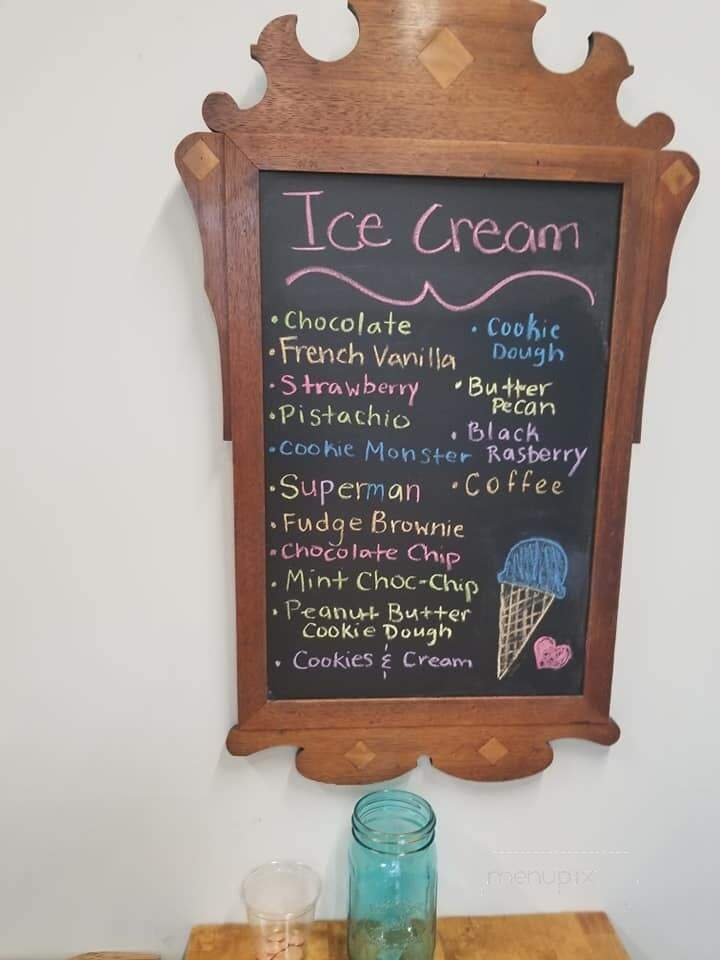 Ice Cream
• Chocolate
• French Vanilla
• Strawberry
• Pistachio
• Cookie Monster
• Superman
• Fudge Brownie
• Chocolate Chip
• Mint Choc-Chip
• Peanut Butter
Cookie Dough
• Cookies & Cream
• Cookie
Dough
• Butter
Pecan
• Black
Rasberry
• Coffee
menupix